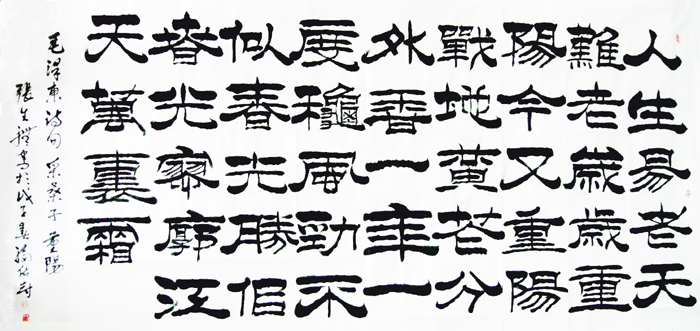 人生易老天
難老歲歲重
陽今又重陽
戰地黃花分
外香一年一
度穐風勁不
似春光勝佀
春光寥廓江
天萬裏霜
毛澤東詩句 采桑子 重陽
張生 書於戊子春